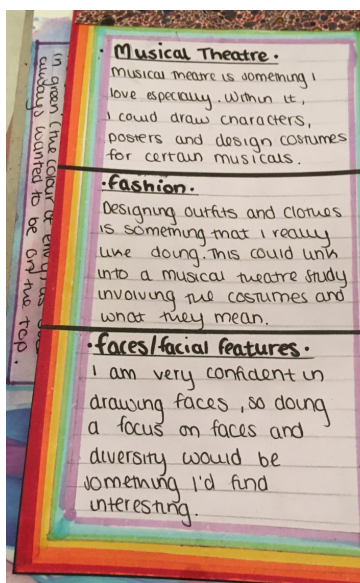 · Musical Theatre ·
Musical theatre is something I
love especially. Within it,
I could draw characters,
posters and design costumes
for certain musicals.
·fashion·
Designing outfits and clothes
is something that I really
like doing. This could link
into a musical theatre study
involving the costumes and
what they mean.
·faces/facial features·
I am very confident in
drawing faces, so doing
a focus on faces and
diversity would be
something I'd find
interesting.
in green (the colour of envy) as
always wanted to be on the top.